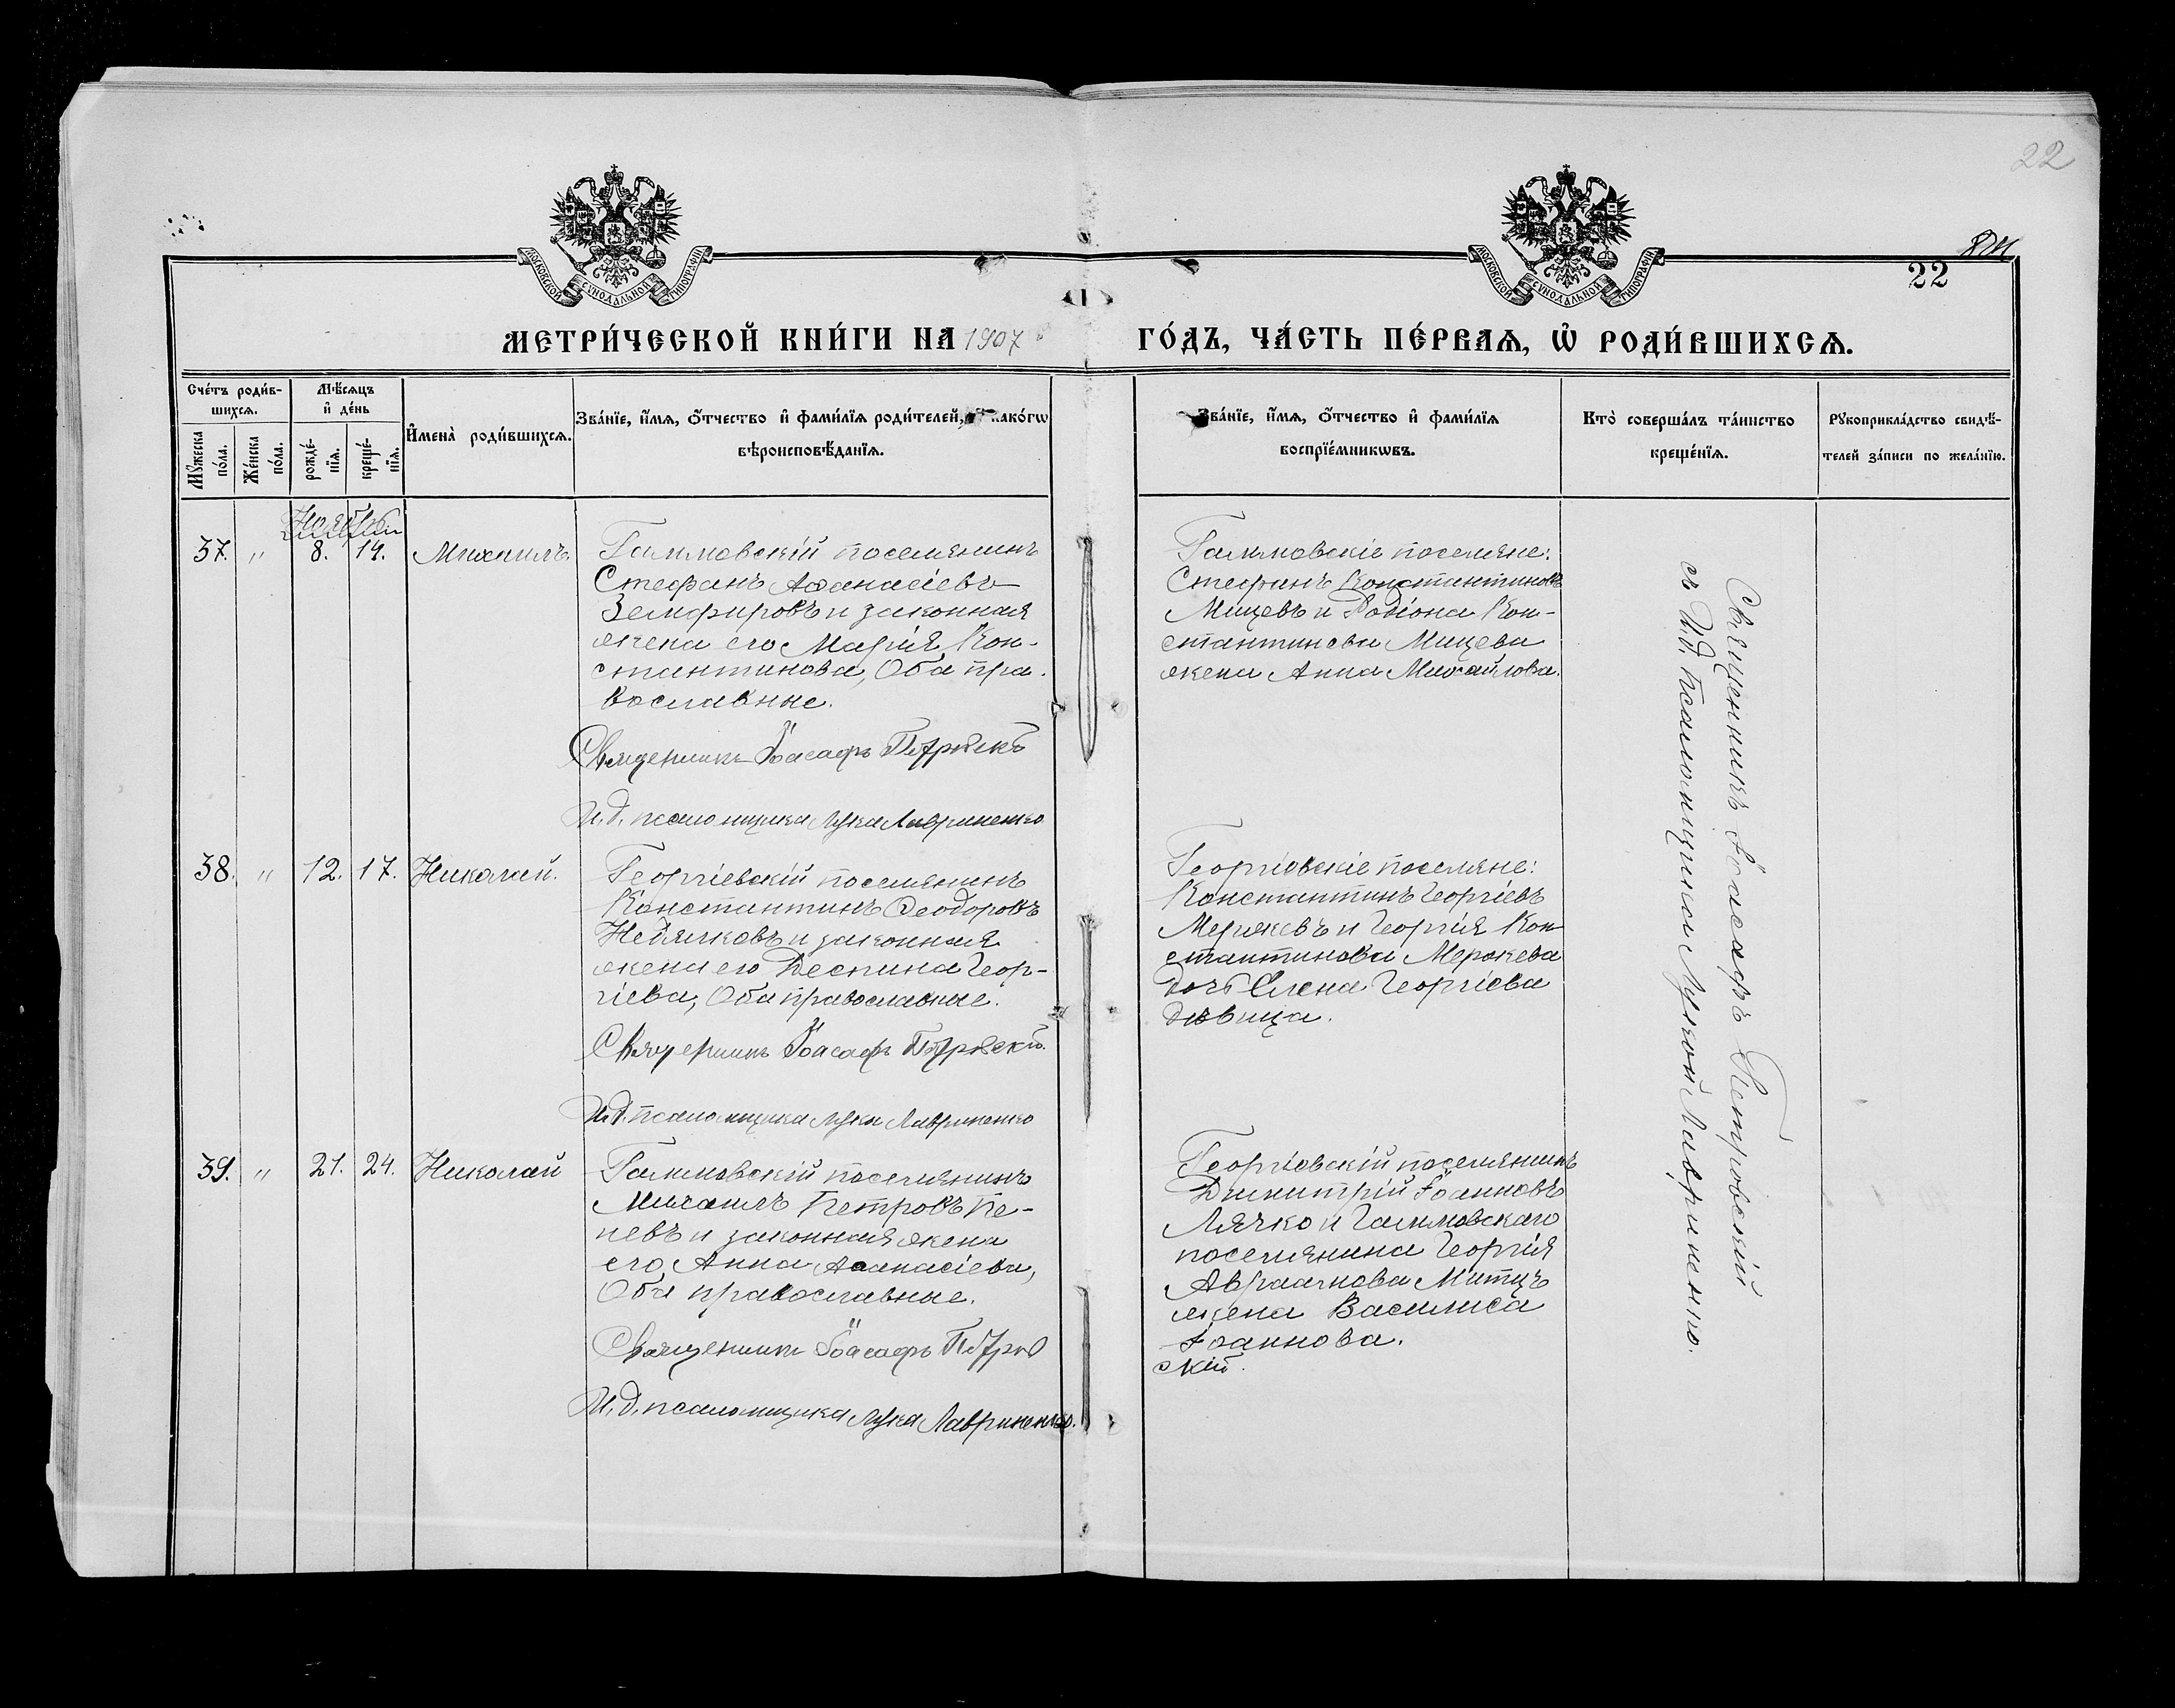 22
МОСКОВСКОЙ СѴНОДАЛЬНОЙ ТИПОГРАФІИ
МОСКОВСКОЙ СѴНОДАЛЬНОЙ ТИПОГРАФІИ
22
МЕТРИ́ЧЕСКОЙ КНИ́ГИ НА 1907
ГО́ДЪ, ЧА́СТЬ ПЕ́РВАѦ, Ѡ҆ РОДИ́ВШИХСѦ.
Сче́тъ роди́в-
шихсѧ.
Мꙋ́жеска по́ла.
Же́нска по́ла.
Мѣ́сѧцъ
и҆ де́нь
рожде́-
нїѧ.
креще́-
нїѧ.
И҆мена̀ роди́вшихсѧ.
Зва́нїе, и҆́мѧ, ѻ҆́тчество и҆ фами́лїѧ роди́телей, како́гѡ
вѣроисповѣ́данїѧ.
Зва́нїе, и҆́мѧ, ѻ҆́тчество и҆ фами́лїѧ
воспрїе́мникѡвъ.
Кто̀ соверша́лъ та́инство
креще́нїѧ.
Рꙋкоприкла́дство свидѣ́-
телей за́писи по жела́нїю.
Ноябрь
37. " 8. 14. Михаилъ
Галиловскій поселянинъ
Стефанъ Аѳанасіевъ
Земфировъ и законная
жена его Марія Кон-
стантинова, Оба пра-
вославные.
Священникъ Іоасафъ Петровскій
И. д. псаломщика Лука Лавриненко
поселяне:
Стефанъ Константиновъ
Мицевъ и Родіона Кон-
стантинова Мицева
жена Анна Михайлова.
38. " 12. 17. Николай.
Георгіевскій поселянинъ
Константинъ Ѳеодоровъ
Недялковъ и законная
жена его Деспина Геор-
гіева, Оба православные.
Священникъ Іоасафъ Петровскій.
И. д. псаломщика Лука Лавриненко
Георгіевскіе поселяне:
Константинъ Георгіевъ
Мержевъ и Георгія Кон-
стантинова Мержева
дочь Елена Георгіева
дѣвица.
39. " 21. 24. Николай
поселянинъ
Михаилъ Петровъ Пе-
невъ и законная жена
его Анна Аѳанасіева,
Оба православные.
Священникъ Іоасафъ Петров
скій.
И. д. псаломщика Лука Лавриненко.
Георгіевскій поселянинъ
Димитрій Іоанновъ
Лячко и
поселянина Георгія
Авраамова Митцъ
жена Василиса
Іоаннова.
Священникъ Іоасафъ Петровскій
съ И. д. Псаломщикомъ Лукой Лавриненко.